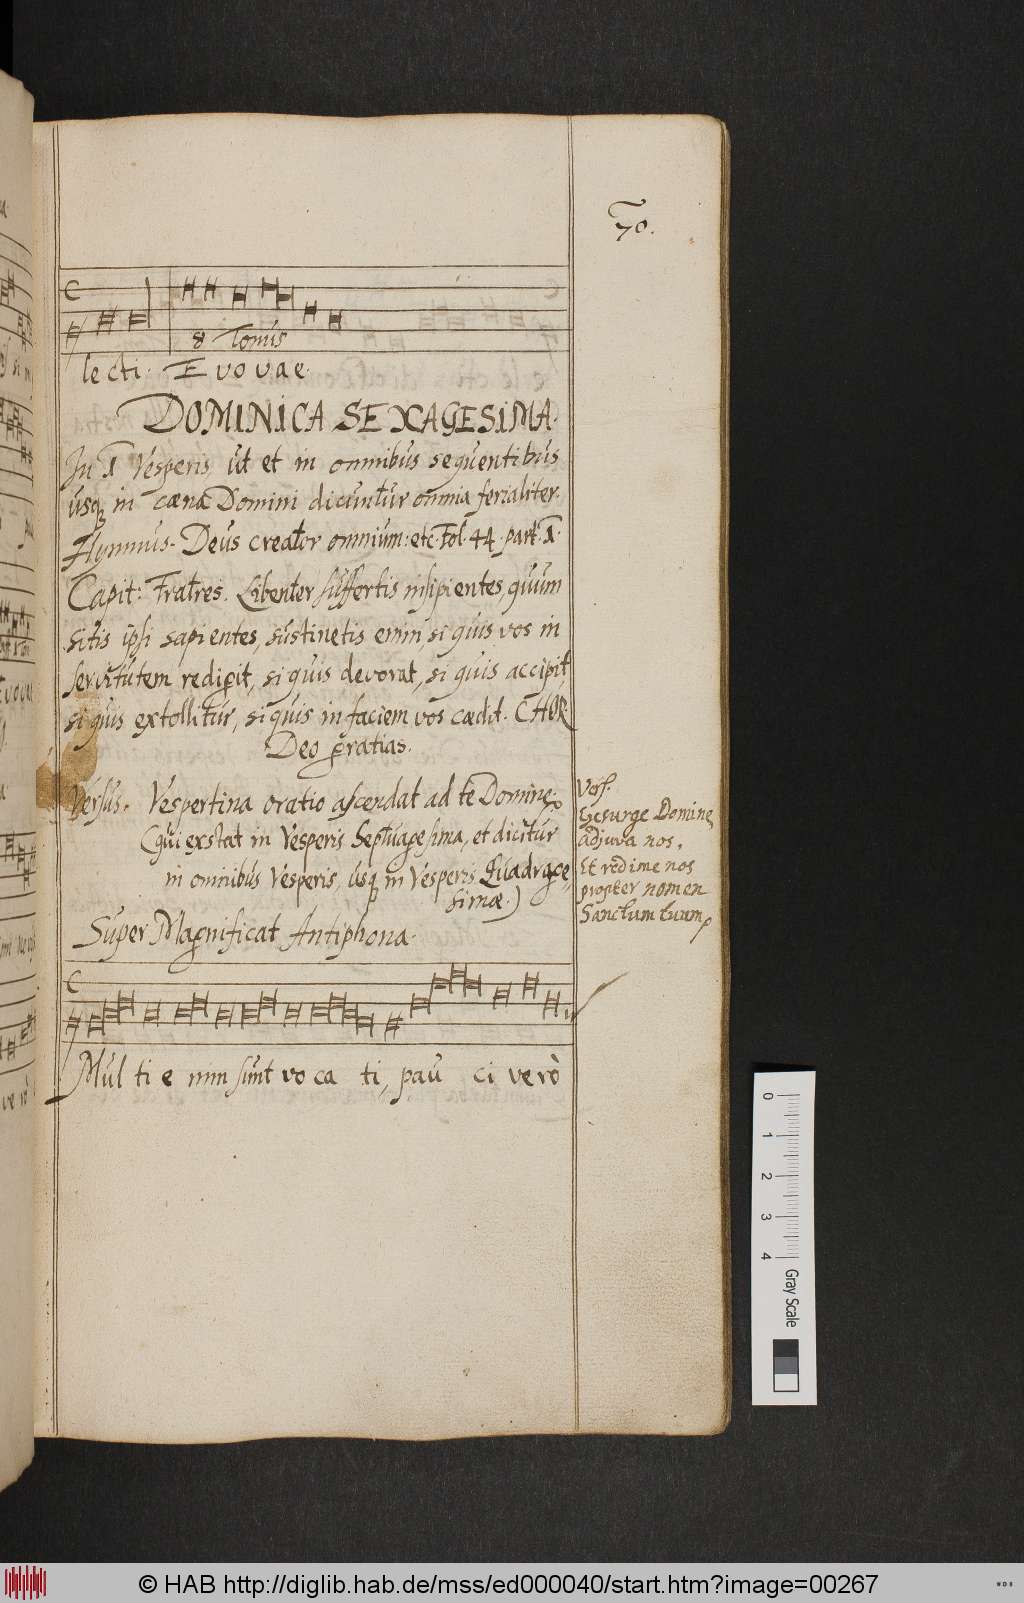 70.
8 Tonus
lecti. Evovae.
DOMINICA SEXAGESIMA.
In 1 Vesperis ut et in omnibus sequentibus
usq in cæna Domini dicuntur omnia ferialiter.
Hymnus. Deus creator omnium: etc. Fol. 44. part. 1.
Capit: Fratres. Libenter suffertis insipientes, quum
sitis ipsi sapientes, sustinetis enim, si quis vos in
servitutem redigit, si quis devorat, si quis accipit,
si quis extollitur, si quis in faciem vos cædit. CHOR
Deo gratias.
Versus. Vespertina oratio ascendat ad te Domine.
(qui exstat in Vesperis Septuagesima, et dicitur
in omnibus Vesperis, usq in Vesperis Quadrage„
simæ.)
Vers.
Exsurge Domine
adjuva nos.
Et redime nos
propter nomen
Sanctum tuum
Super Magnificat Antiphona.
Multi enim sunt vocati, pauci verò
0 1 2 3 4 Gray Scale
© HAB http://diglib.hab.de/mss/ed000040/start.htm?image=00267